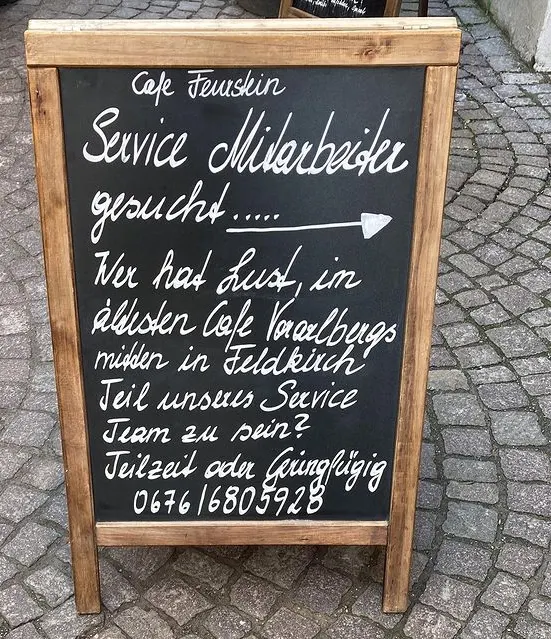 Cafe Feurstein
Service Mitarbeiter
gesucht.....
Wer hat Lust, im
ältesten Cafe Vorarlbergs
mitten in Feldkirch
Teil unseres Service
Team zu sein?
Teilzeit oder Geringfügig
0676/6805928